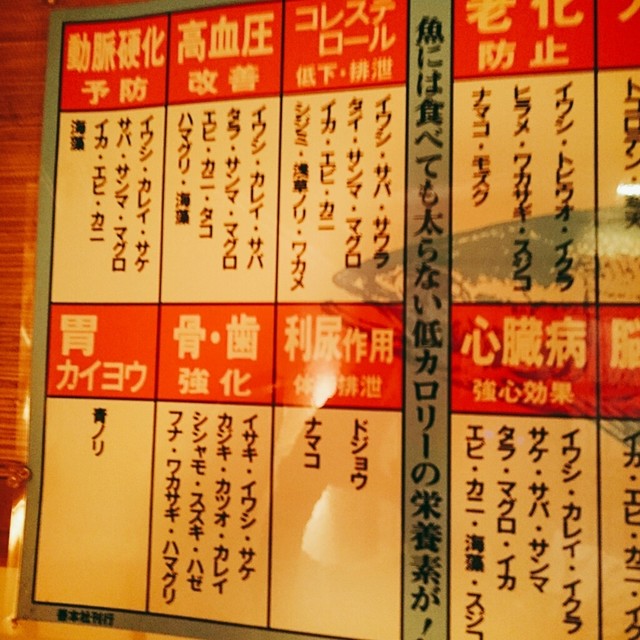 動脈硬化
予防
イワシ・カレイ・サケ
サバ・サンマ・マグロ
イカ・エビ・カニ
海藻
高血圧
改善
イワシ・カレイ・サバ
タラ・サンマ・マグロ
エビ・カニ・タコ
ハマグリ・海藻
コレステ
ロール
低下・排泄
イワシ・サバ・サワラ
タイ・サンマ・マグロ
イカ・エビ・カニ
シジミ・浅草ノリ・ワカメ
魚には食べても太らない低カロリーの栄養素が!
老化
防止
イワシ・トビウオ・イクラ
ヒラメ・ワカサギ・スジコ
ナマコ・モズク
胃
カイヨウ
青ノリ
骨・歯
強化
イサキ・イワシ・サケ
カジキ・カツオ・カレイ
シシャモ・スズキ・ハゼ
フナ・ワカサギ・ハマグリ
利尿作用
排泄
ドジョウ
ナマコ
心臓病
強心効果
イワシ・カレイ・イクラ
サケ・サバ・サンマ
タラ・マグロ・イカ
エビ・カニ・海藻・スジコ